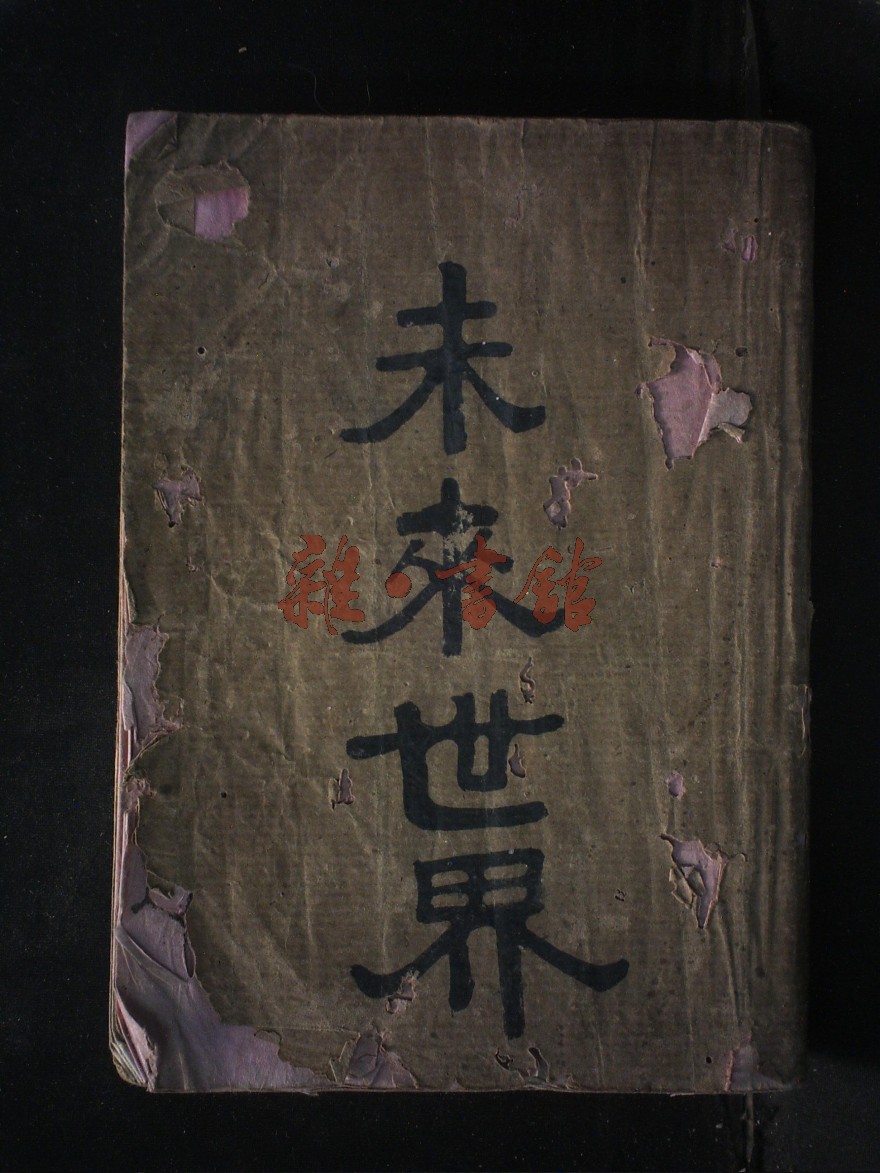 未來世界
雜·書館